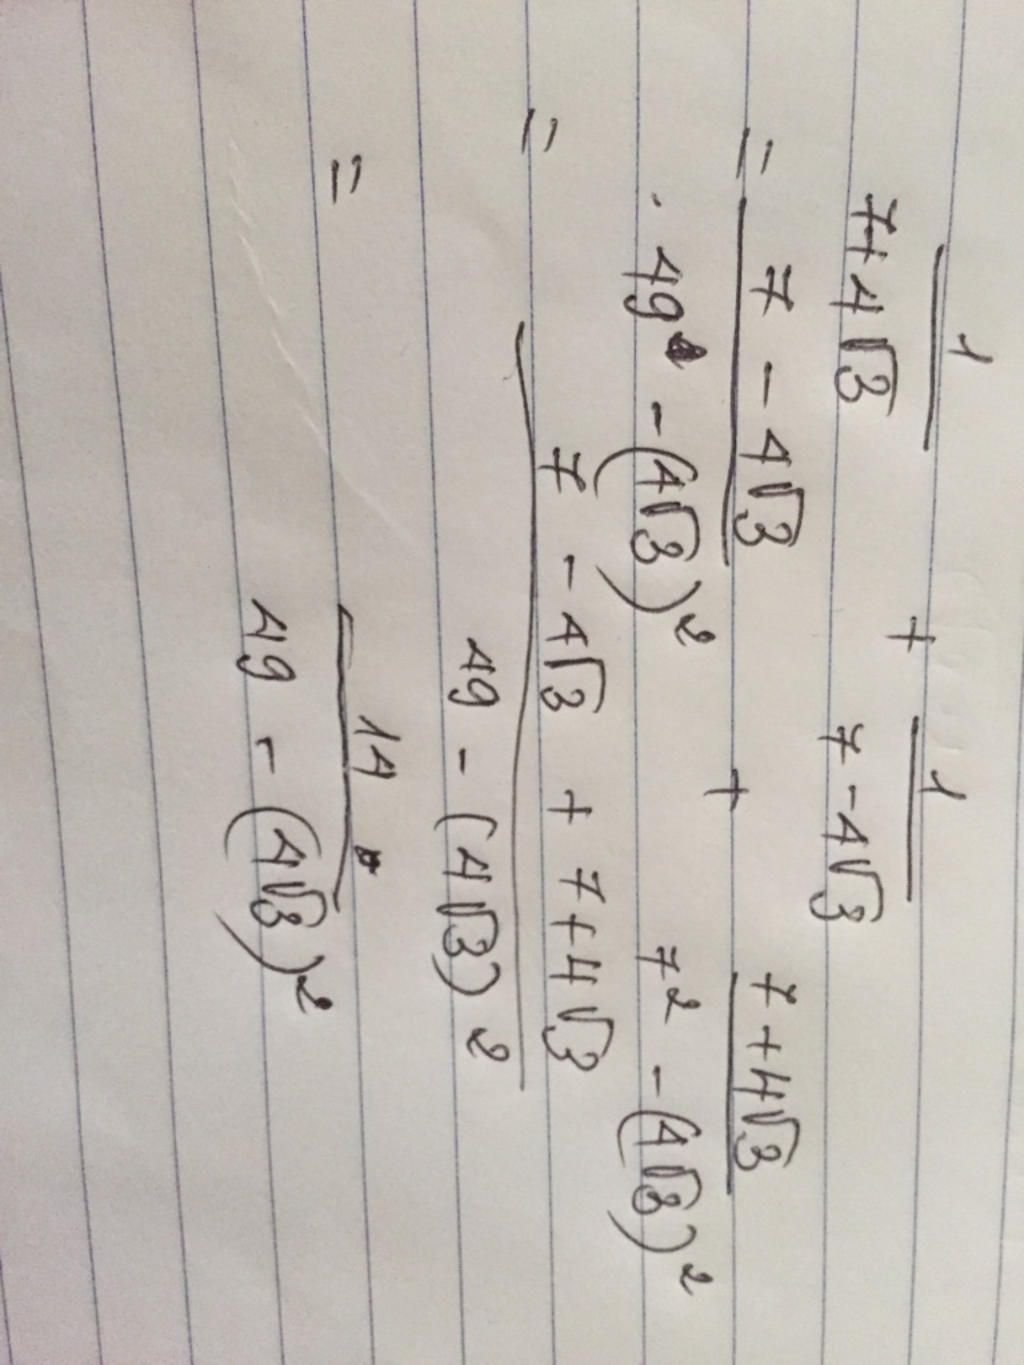 1/(7+4√3) + 1/(7-4√3)
= (7-4√3)/(49-(4√3)²) + (7+4√3)/(7²-(4√3)²)
= (7-4√3+7+4√3)/(49-(4√3)²)
= 14/(49-(4√3)²)